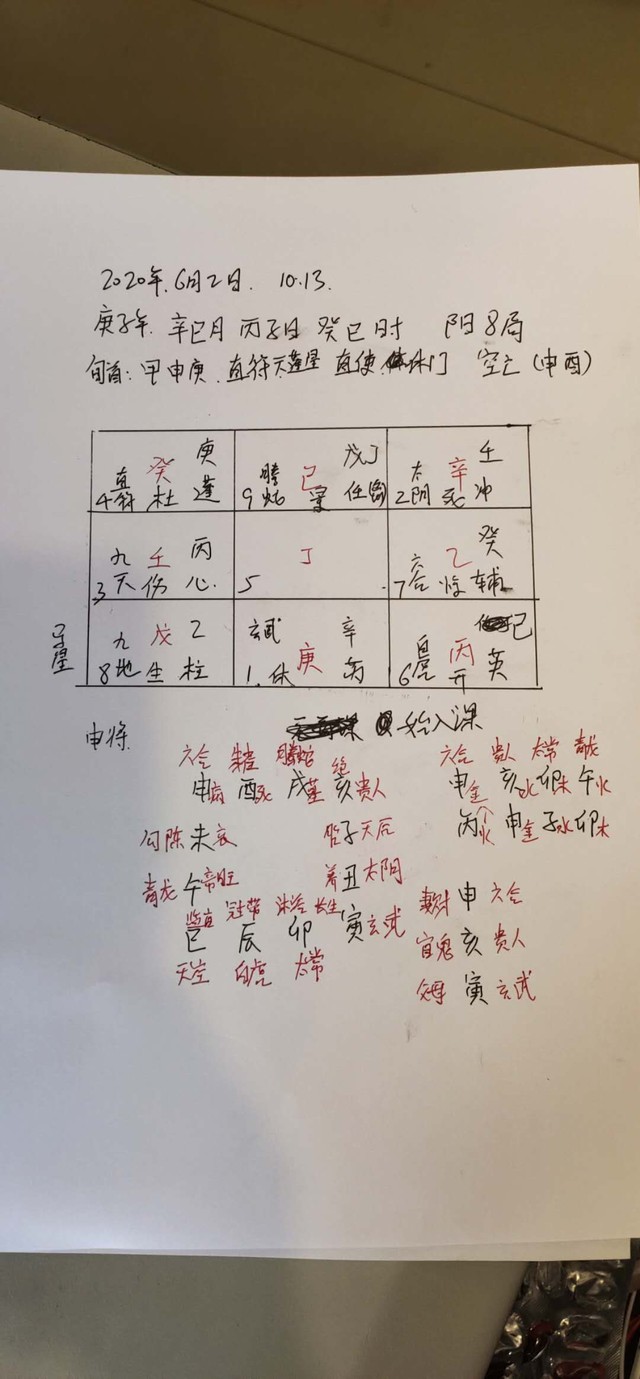 2020年.6月2日. 10.13.
庚子年 辛巳月 丙子日 癸巳时 阳8局
旬首:甲申庚.直符天蓬星 直使休门 空亡(申酉)
庚 戊丁 壬
直符 癸 螣蛇 己 太阴 辛
4 杜 蓬 9 景 任芮 2 死 冲
九天 壬 丙 丁 六合 乙 癸
3 伤 心. 5 7 惊 辅
九地 戊 乙 玄武 辛 白虎 丙 己
8 生 柱 1.休 庚 6 开 英
申将 始入课
六合 朱雀 螣蛇 绝 六合 贵人 太常 青龙
申病 酉死 戌墓 亥贵人 申金 亥水 卯木 午火
勾陈未衰 胎子天后 丙火 申金 子水 卯木
青龙 午帝旺 养丑太阴
临官 冠带 沐浴 长生 妻财 申 六合
巳 辰 卯 寅玄武 官鬼 亥 贵人
天空 白虎 太常 父母 寅 玄武